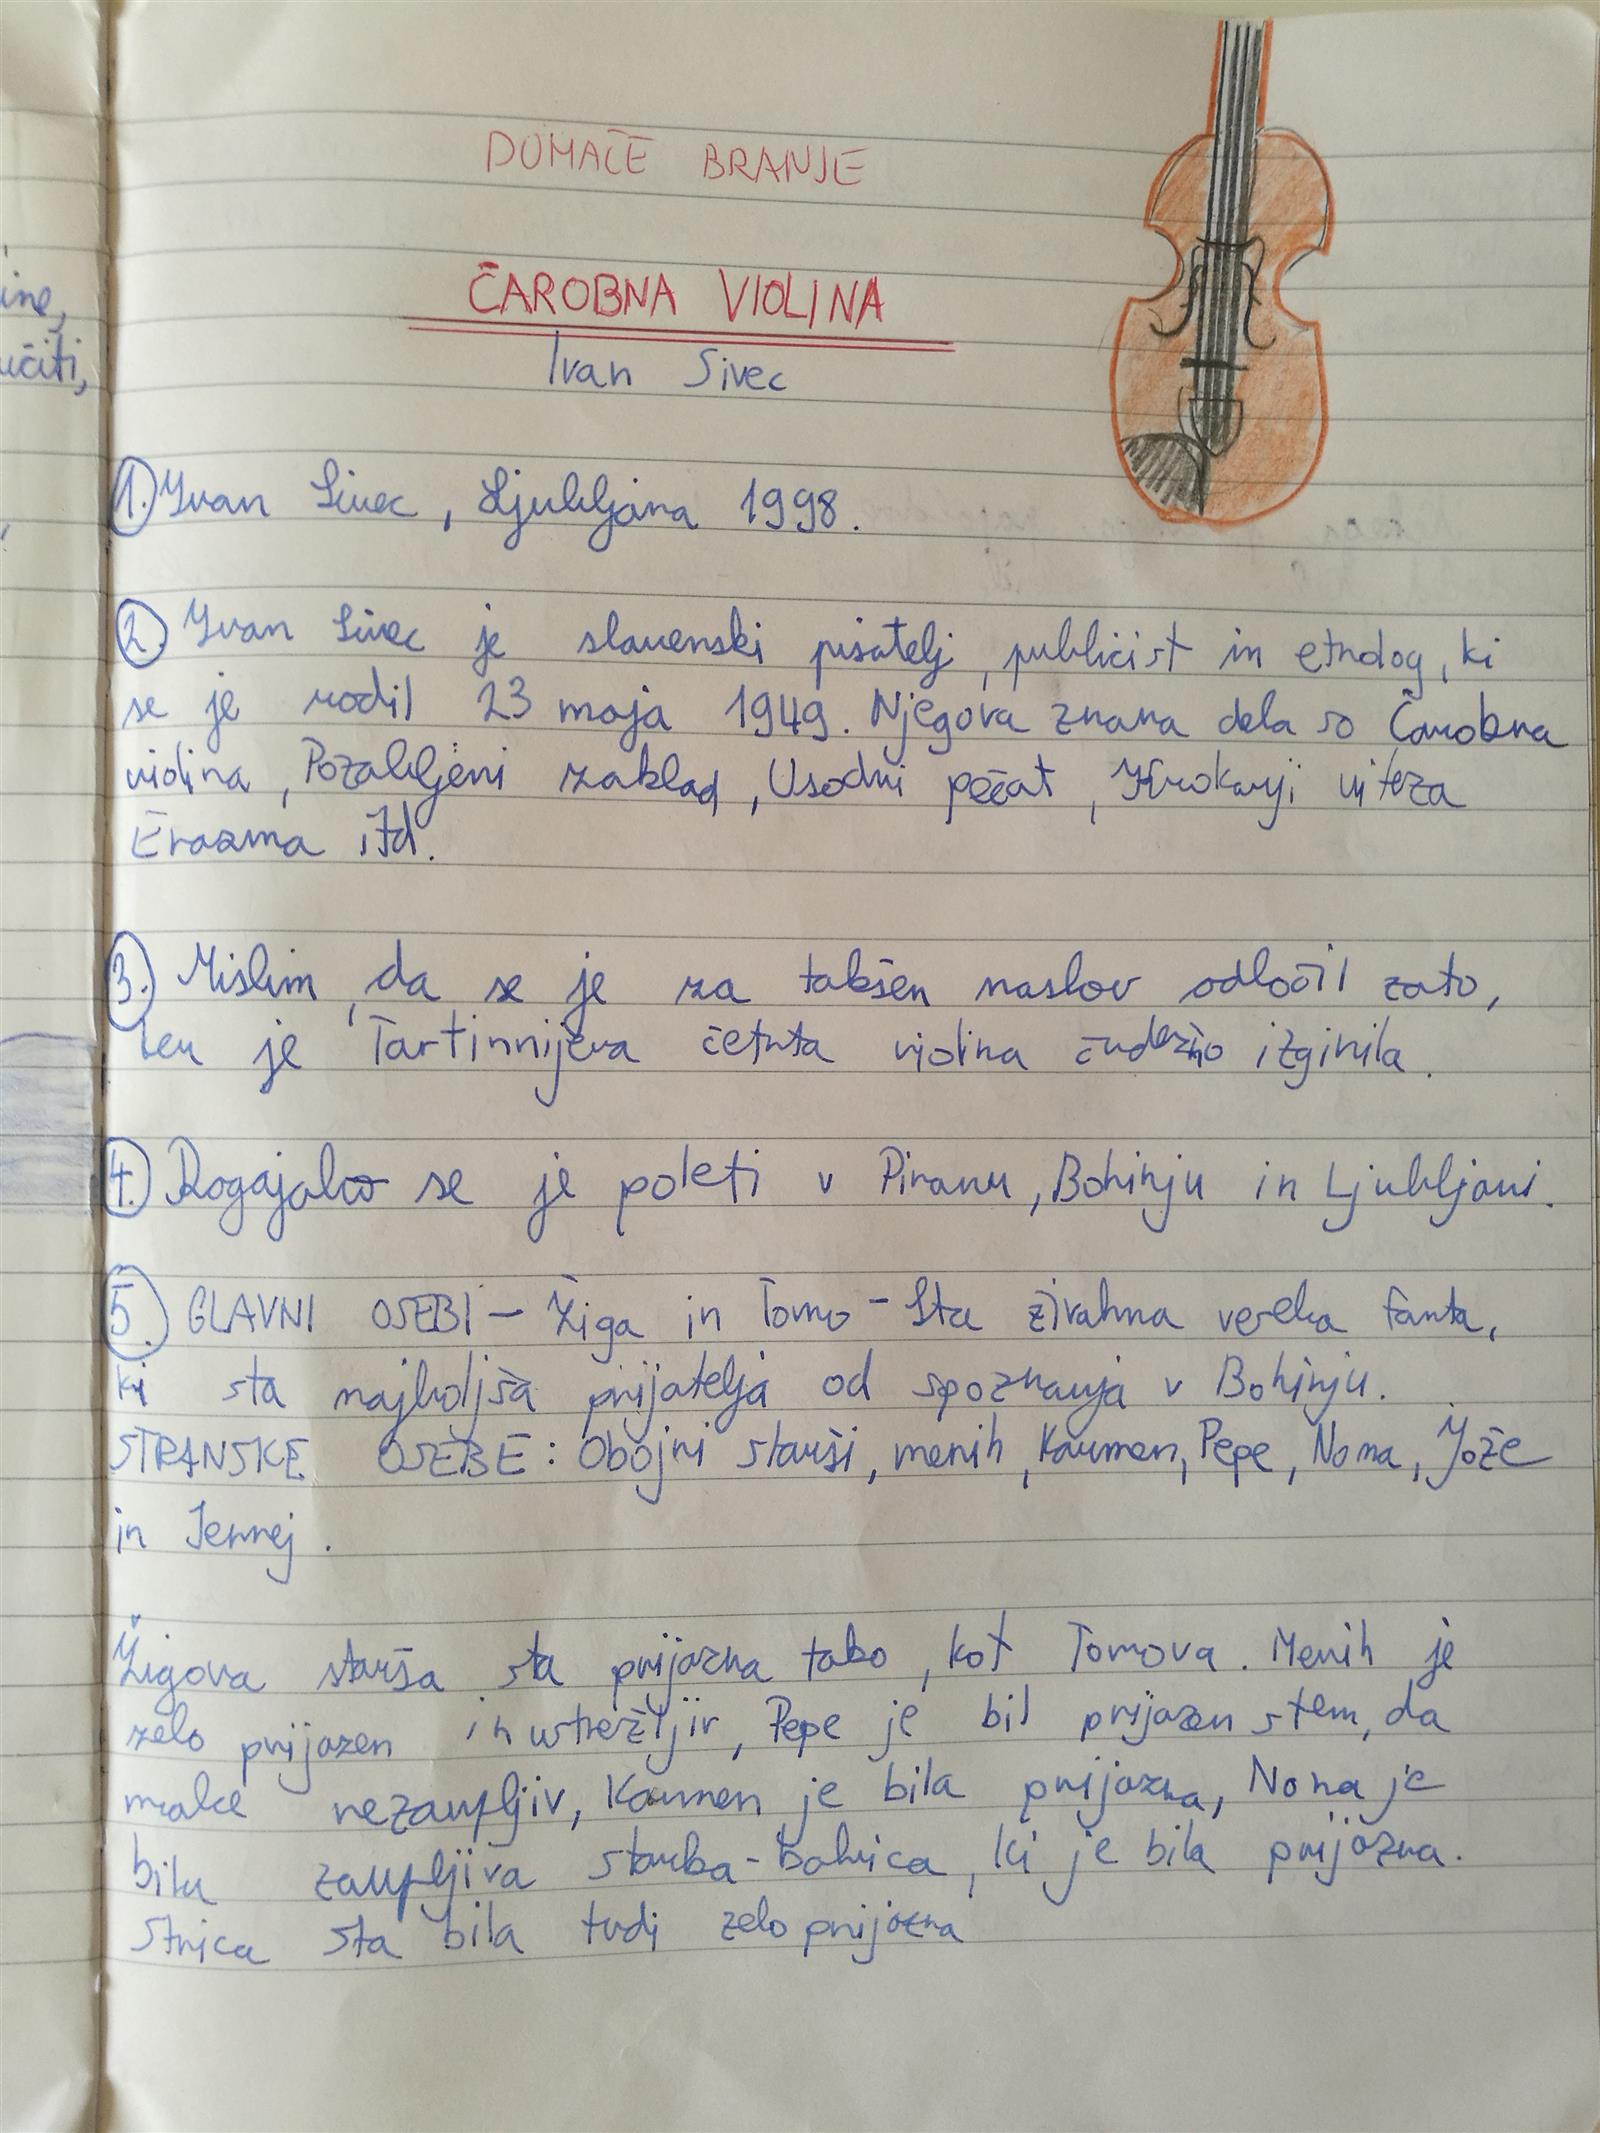 ine,
učiti,
DOMAČE BRANJE
ČAROBNA VIOLINA
Ivan Sivec
1. Ivan Sivec, Ljubljana 1998.
2. Ivan Sivec je slovenski pisatelj, publicist in etnolog, ki
se je rodil 23 maja 1949. Njegova znana dela so Čarobna
violina, Pozabljeni zaklad, Usodni pečat, Krokarji viteza
Erazma itd.
3. Mislim, da se je za takšen naslov odločil zato,
ker je Tartinnijeva četrta violina čudežno izginila.
4. Dogajalo se je poleti v Piranu, Bohinju in Ljubljani.
5. GLAVNI OSEBI - Žiga in Tomo - Sta živahna vesela fanta,
ki sta najboljša prijatelja od spoznanja v Bohinju.
STRANSKE OSEBE: Obojni starši, menih, Karmen, Pepe, Nona, Jože
in Jernej.
Žigova starša sta prijazna tako, kot Tomova. Menih je
zelo prijazen in ustrežljiv, Pepe je bil prijazen stem, da
malce nezaupljiv, Karmen je bila prijazna, Nona je
bila zaupljiva starka-babica, ki je bila prijazna.
Strica sta bila tudi zelo prijazna